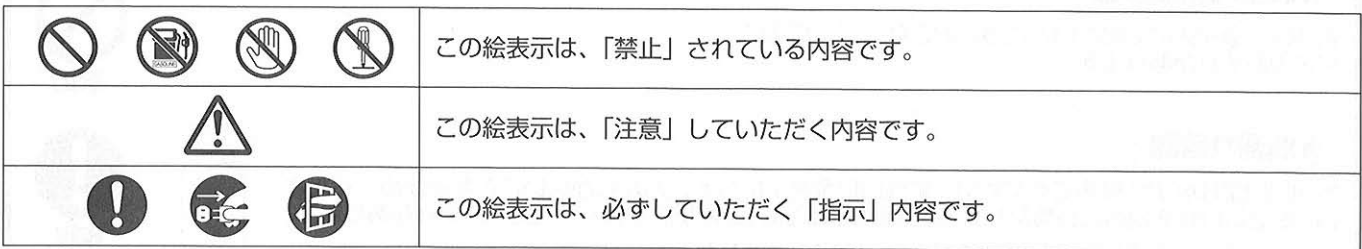 GASOLINE
この絵表示は、「禁止」されている内容です。
この絵表示は、「注意」していただく内容です。
この絵表示は、必ずしていただく「指示」内容です。